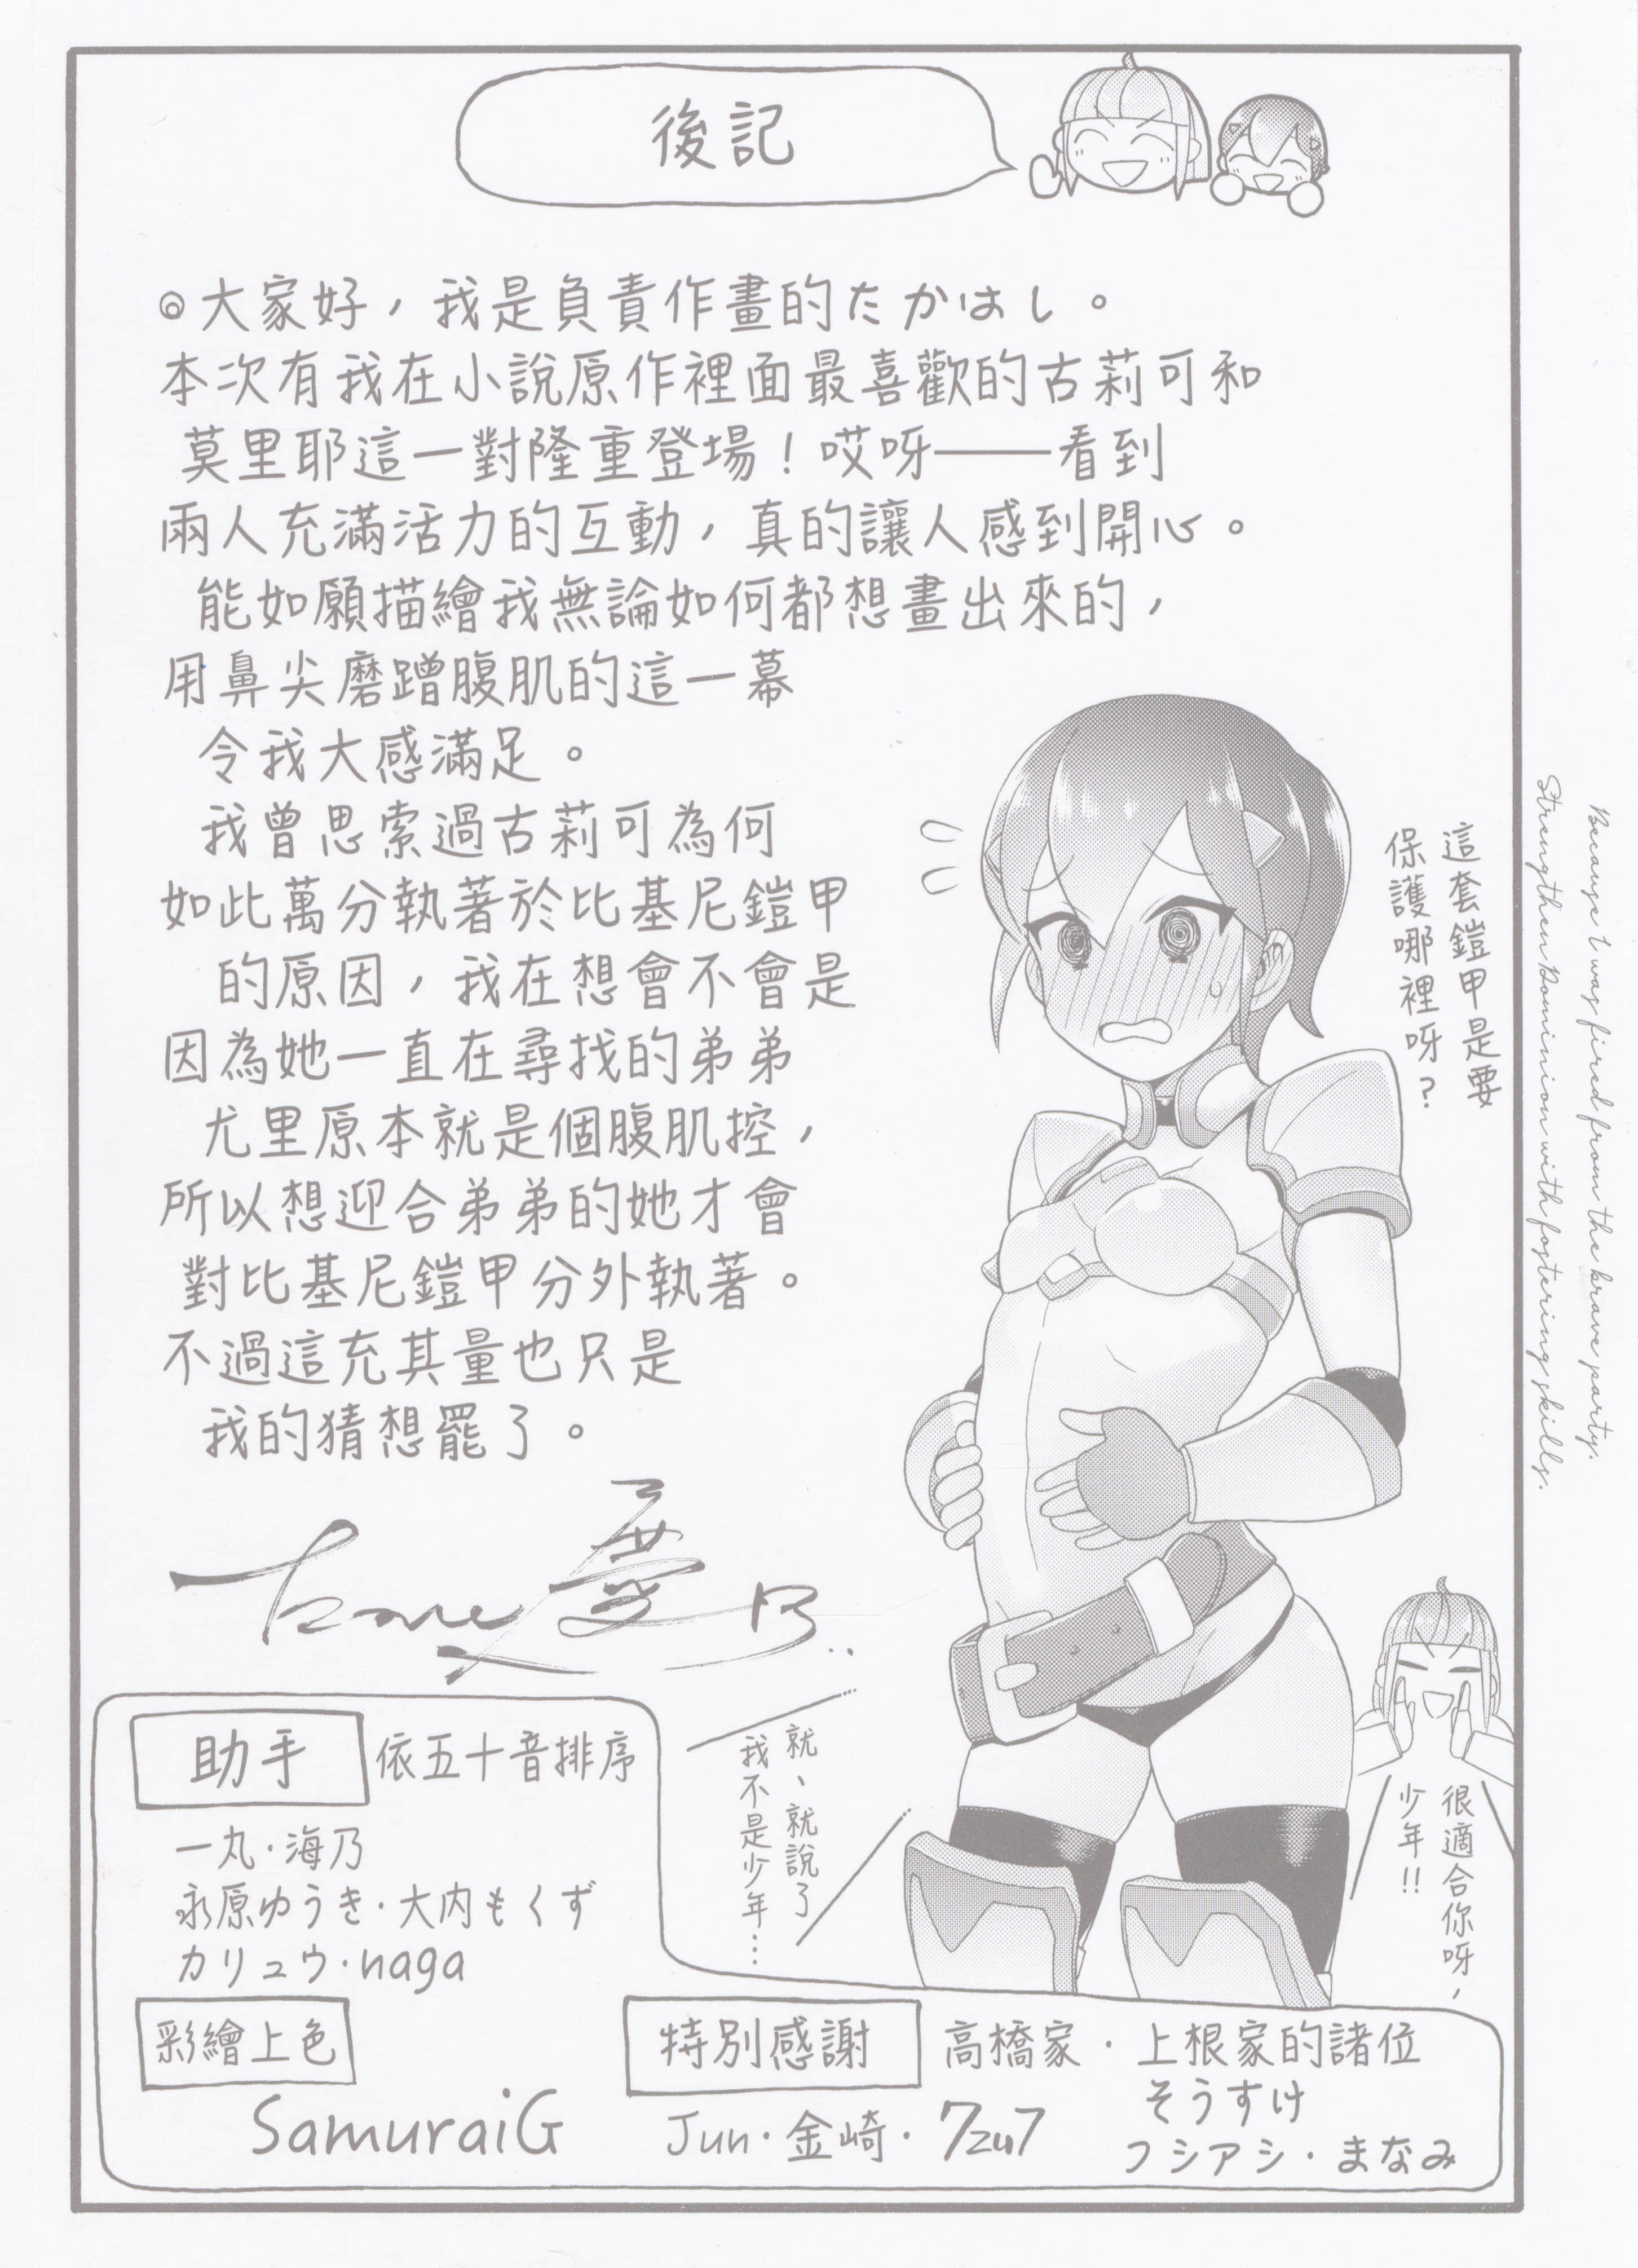 後記
◎大家好，我是負責作畫的たかはし。
本次有我在小說原作裡面最喜歡的古莉可和
莫里耶這一對隆重登場！哎呀——看到
兩人充滿活力的互動，真的讓人感到開心。
能如願描繪我無論如何都想畫出來的，
用鼻尖磨蹭腹肌的這一幕
令我大感滿足。
我曾思索過古莉可為何
如此萬分執著於比基尼鎧甲
的原因，我在想會不會是
因為她一直在尋找的弟弟
尤里原本就是個腹肌控，
所以想迎合弟弟的她才會
對比基尼鎧甲分外執著。
不過這充其量也只是
我的猜想罷了。
這套鎧甲是要
保護哪裡呀？
Because I was fired from the brave party.
Strengthen Dominion with fostering skills.
很適合你呀，
少年!!
就、就說了
我不是少年…
助手
依五十音排序
一丸·海乃
永原ゆうき·大内もくず
カリュウ·naga
彩繪上色
SamuraiG
特別感謝
高橋家·上根家的諸位
そうすけ
Jun·金崎·7zu7
フシアシ·まなみ